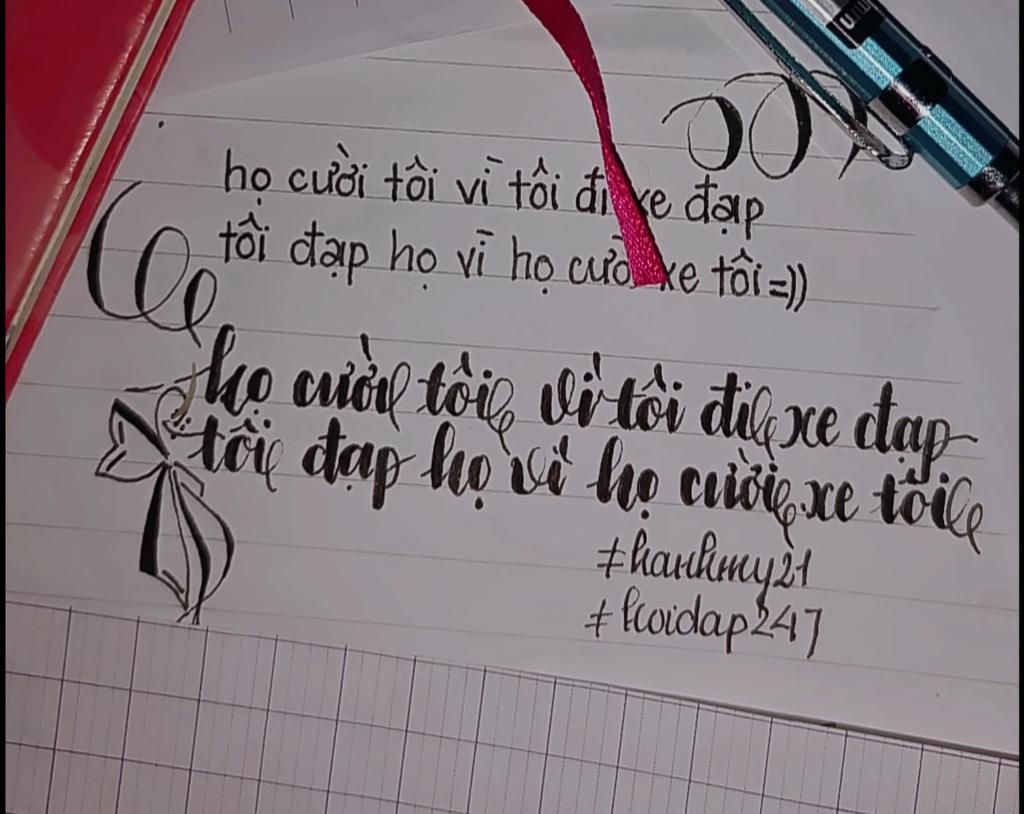 họ cười tôi vì tôi đi xe đạp
tôi đạp họ vì họ cười xe tôi=))
họ cười tôi vì tôi đi xe đạp
tôi đạp họ vì họ cười xe tôi
#hanhmy21
#hoidap247